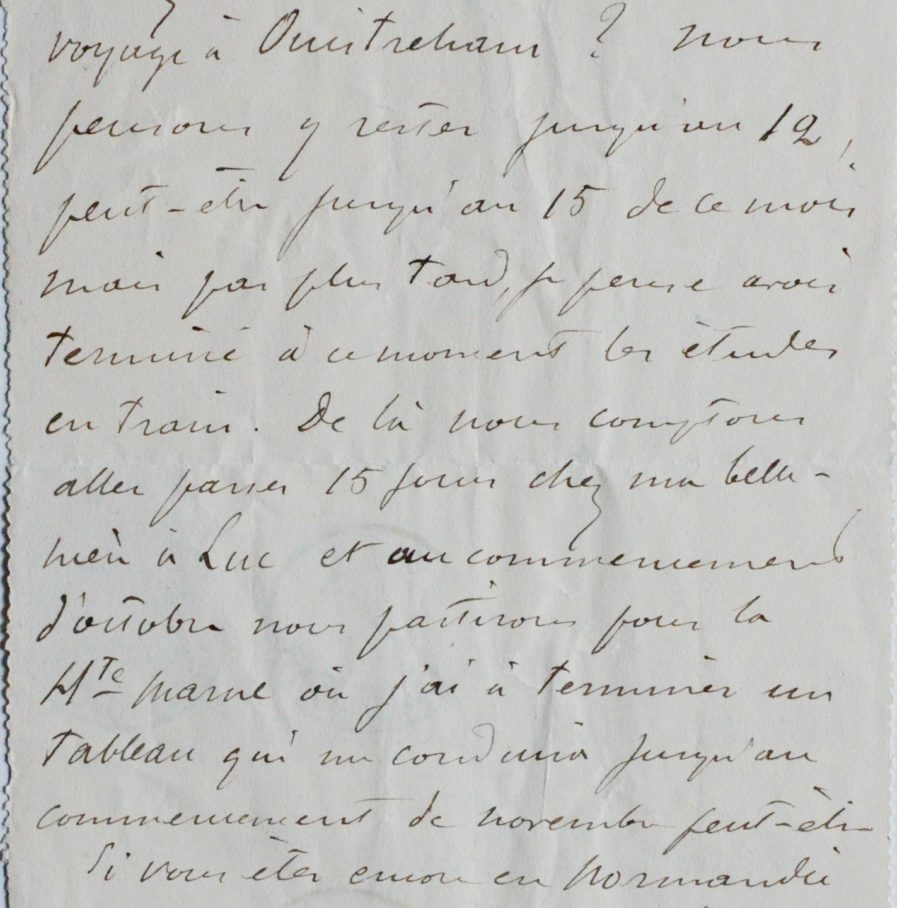 voyage à Ouistreham ? nous
pensons y rester jusqu'au 12,
peut-être jusqu'au 15 de ce mois
mais pas plus tard, je pense avoir
terminé à ce moment les études
en train. De là nous comptons
aller passer 15 jours chez ma belle-
mère à Luc et au commencement
d'octobre nous partirons pour la
Hte Marne où j'ai à terminer un
tableau qui me conduira jusqu'au
commencement de novembre peut-être
Si vous êtes encore en Normandie